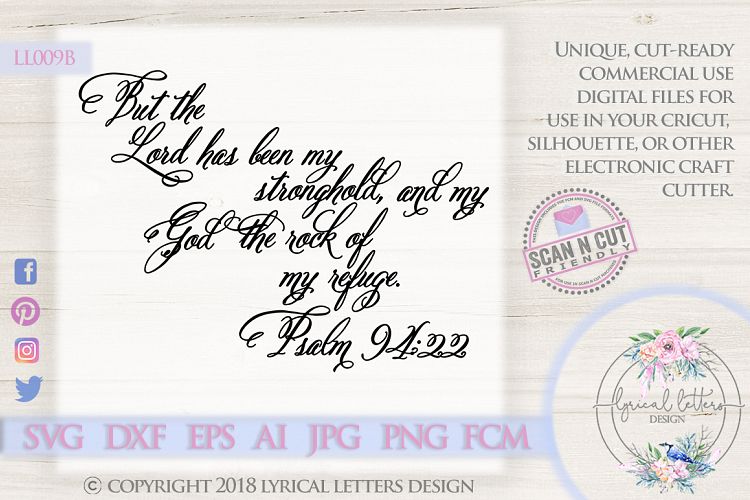 LL009B
But the
Lord has been my
stronghold, and my
God the rock of
my refuge.
Psalm 94:22
UNIQUE, CUT-READY
COMMERCIAL USE
DIGITAL FILES FOR
USE IN YOUR CRICUT,
SILHOUETTE, OR OTHER
ELECTRONIC CRAFT
CUTTER.
SCAN N CUT
FRIENDLY
SVG DXF EPS AI JPG PNG FCM
lyrical letters
DESIGN
© COPYRIGHT 2018 LYRICAL LETTERS DESIGN